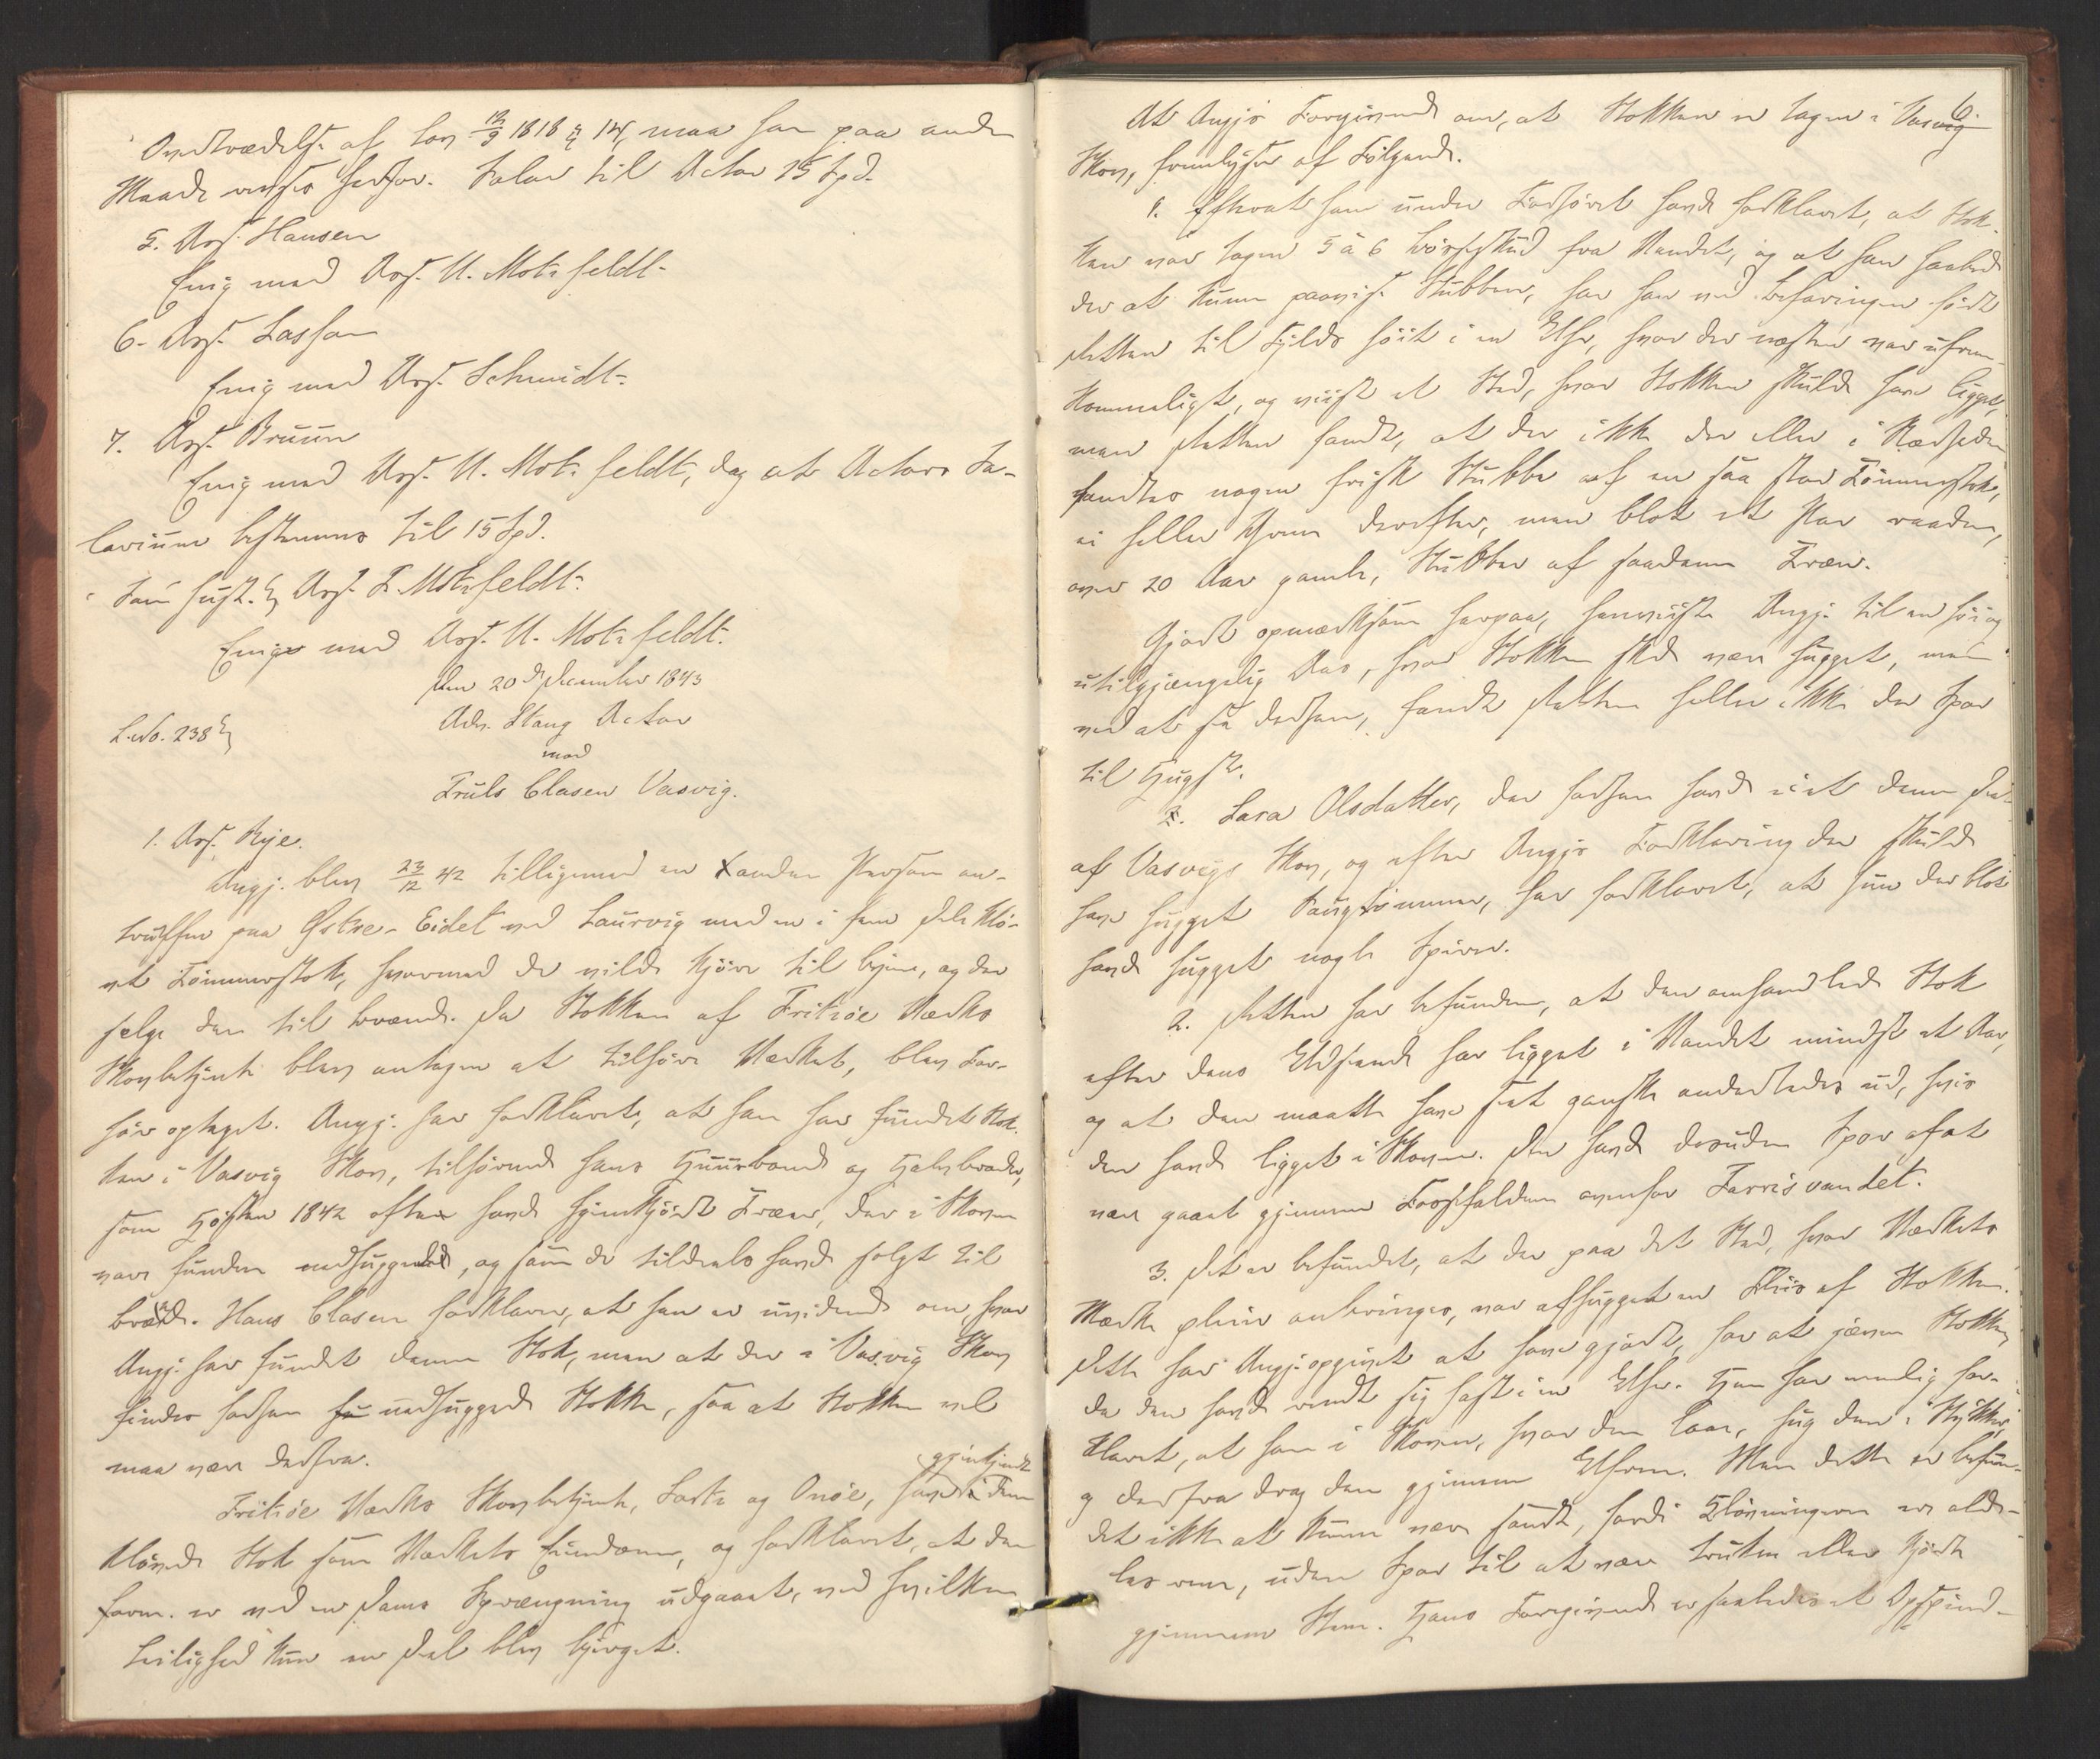 Overtrædelse af Lov 12/9 1818 § 14, maa han paa anden
Maade ansees herfor. Salar til Actor 15 Spd.
5. Ass. Hansen
Enig med Ass. U. Motzfeldt.
6. Ass. Lasson
Enig med Ass. Schmidt.
7. Ass. Bruun
Enig med Ass. U. Motzfeldt, dog at Actors Sa-
larium bestemmes til 15 Spd.
Ass. F. Motzfeldt.
Enig med Ass. U. Motzfeldt.
Den 20de December 1843
L. No. 238
Adv. Stang Actor
mod
Truls Clasen Vasvig.
1. Ass. Rye.
Angj. blev 23/12 42 tilligemed en anden Person an-
truffen paa Østre-Eidet ved Laurvig med en i fem Dele klø-
vet Tømmerstok, hvormed de vilde kjøre til Byen, og der
sælge den til Brænde. Da Stokken af Fritzøe Værks
Skovbetjente blev antagen at tilhøre Værket, blev For-
hør optaget. Angj. har forklaret, at han har fundet Stok-
ken i Vasvig Skov, tilhørende hans Huusbond og Halvbroder,
som Høsten 1842 oftere havde hjemkjørt Træer, der i Skoven
vare fundne nedhuggede, og som de tildeels havde solgt til
Brænde. Hans Clasen forklarer, at han er uvidende om, hvor
Angj. har fundet denne Stok, men at der i Vasvig Skov
findes forhen nedhuggede Stokke, saa at Stokken vel
maa være derfra.
Fritzøe Værks Skovbetjente, Sartz og Onsøe, havde gjenkjendt den
kløvede Stok som Værkets Eiendom, og forklaret, at den
form. er ved en Dams Sprængning udgaaet, ved hvilken
Leilighed kun en Deel blev bjerget.
6.
At Angjs Foregivende om, at Stokken er tagen i Vasvig
Skov, fremlyser af Følgende.
1. Efterat han under Forhøret havde forklaret, at Stok-
ken var tagen 5 à 6 Børseskud fra Vandet, og at han saaled
der at kunne paavise Stubben, har han ved Befaringen ført
Retten til Fjelds høit i en Elv, hvor der næsten var ufrem-
kommeligt, og viist et Sted, hvor Stokken skulde have ligget,
men Retten fandt, at der ikke der eller i Nærheden
fandtes nogen frisk Stubbe af en saa stor Tømmerstok,
ei heller Spor derefter, men blot et Par raadne,
over 20 Aar gamle, Stubber af saadanne Træer.
Gjort opmærksom herpaa, henviiste Angj. til en høi og
utilgjængelig Aas, hvor Stokken skde være hugget, men
ved at see derhen, fandt Retten heller ikke der Spor
til Hugst.
Lara Olsdatter, der forhen havde eiet denne Deel
af Vasvigs Skov, og efter Angjs Forklaring der skulde
have hugget Saugtømmer, har forklaret, at hun der blot
havde hugget nogle Spirer.
2. Retten har befunden, at den omhandlede Stok
efter dens Udseende har ligget i Vandet mindst et Aar,
og at den maatte have seet ganske anderledes ud, hvis
den havde ligget i Skoven. Den havde desuden Spor af at
være gaaet gjennem Fossefaldene ovenfor Farrisvandet.
3. Det er befundet, at der paa det Sted, hvor Værkets
Mærke pleier anbringes, var afhugget en Fliis af Stokken.
Dette har Angj. opgivet at have gjort, for at jævne Stokken,
da den havde vendt sig fast i en Elv. Han har nemlig for-
klaret, at han i Skoven, hvor den laae, hug den i Stykker,
og derfra drog den gjennem Elven. Men dette er befun-
det ikke at kunne være sandt, fordi Kløvningerne ere alde-
les rene, uden Spor til at være trukne eller kjørte
gjennem Steen. Hans Foregivende er saaledes et Opspind-